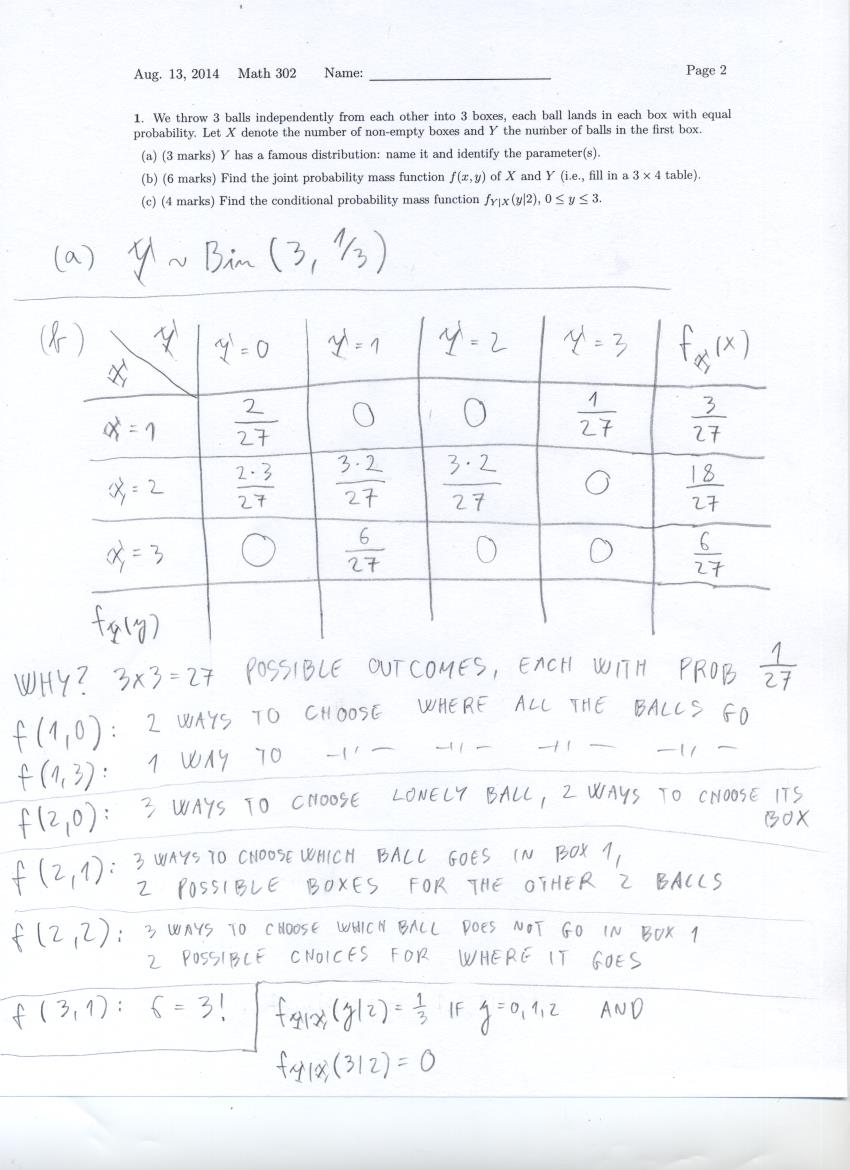 Aug. 13, 2014 Math 302 Name: Page 2
1. We throw 3 balls independently from each other into 3 boxes, each ball lands in each box with equal
probability. Let X denote the number of non-empty boxes and Y the number of balls in the first box.
(a) (3 marks) Y has a famous distribution: name it and identify the parameter(s).
(b) (6 marks) Find the joint probability mass function f(x, y) of X and Y (i.e., fill in a 3 × 4 table).
(c) (4 marks) Find the conditional probability mass function f_{Y|X}(y|2), 0 ≤ y ≤ 3.
(a) Y ~ Bin (3, 1/3)
(b) X Y Y=0 Y=1 Y=2 Y=3 f_X(x)
X=1 2/27 0 0 1/27 3/27
X=2 2·3/27 3·2/27 3·2/27 0 18/27
X=3 0 6/27 0 0 6/27
f_Y(y)
WHY? 3x3=27 POSSIBLE OUTCOMES, EACH WITH PROB 1/27
f(1,0): 2 WAYS TO CHOOSE WHERE ALL THE BALLS GO
f(1,3): 1 WAY TO -11- -11- -11- -11-
f(2,0): 3 WAYS TO CHOOSE LONELY BALL, 2 WAYS TO CHOOSE ITS
BOX
f(2,1): 3 WAYS TO CHOOSE WHICH BALL GOES IN BOX 1,
2 POSSIBLE BOXES FOR THE OTHER 2 BALLS
f(2,2): 3 WAYS TO CHOOSE WHICH BALL DOES NOT GO IN BOX 1
2 POSSIBLE CHOICES FOR WHERE IT GOES
f(3,1): 6 = 3! f_{Y|X}(y|2) = 1/3 IF y=0,1,2 AND
f_{Y|X}(3|2) = 0